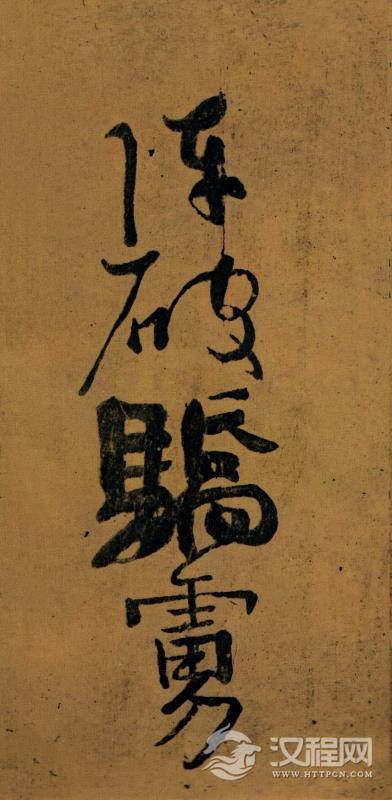 陣破驕虜
汉程网
WWW.HTTPCN.COM